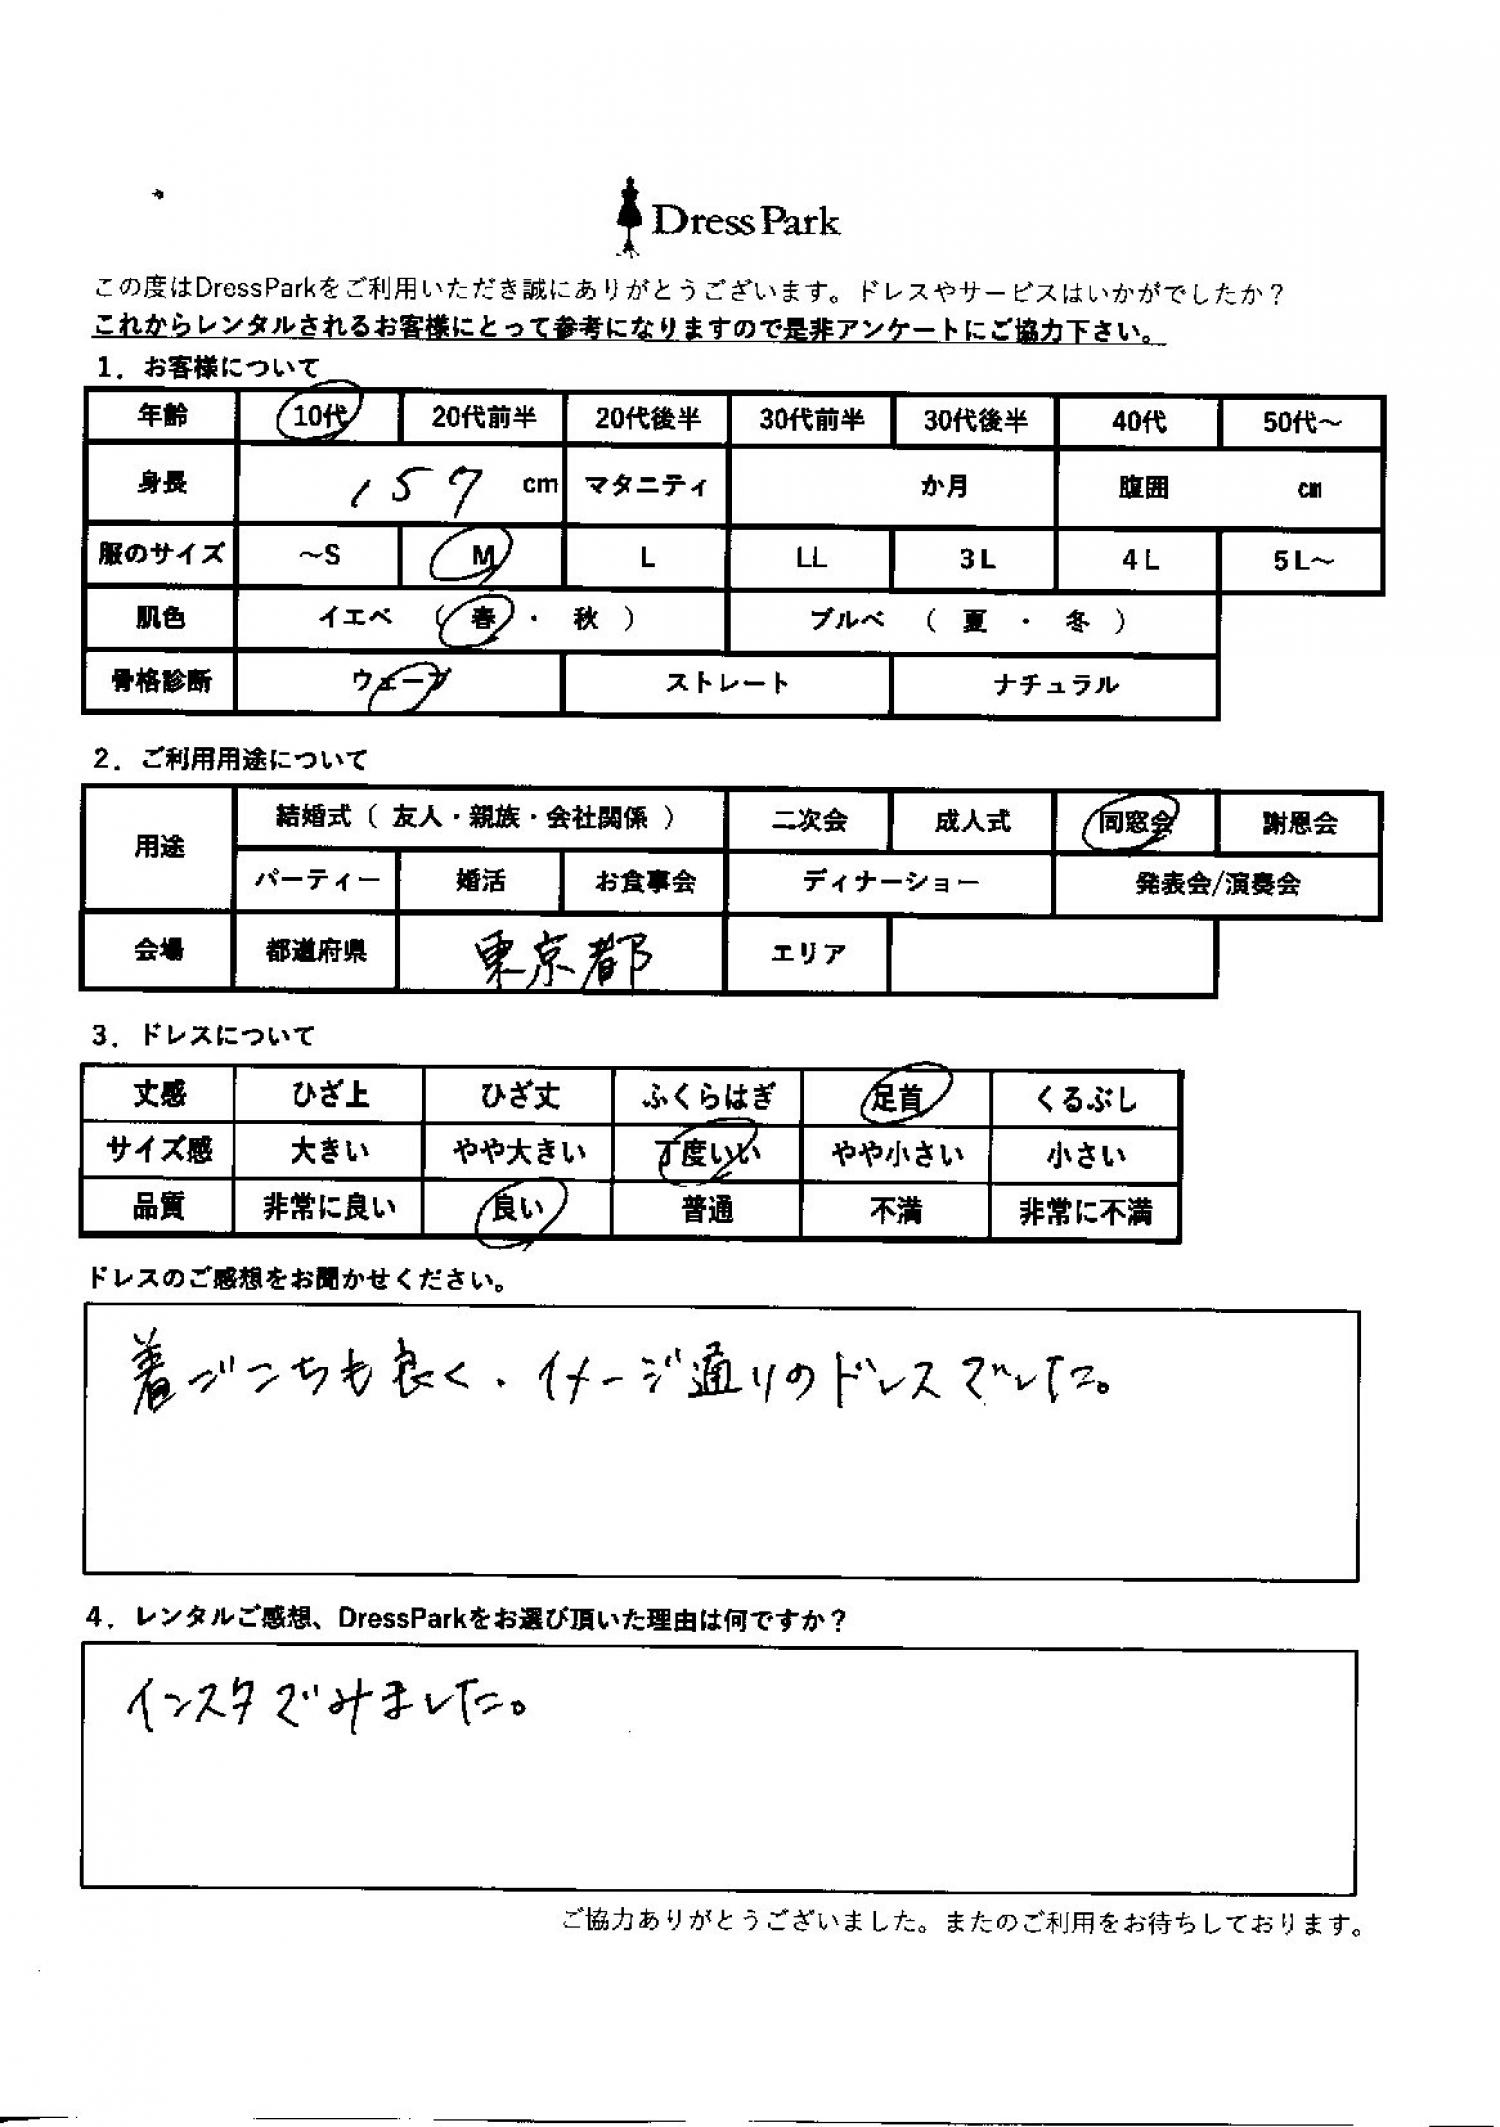 Dress Park
この度はDressParkをご利用いただき誠にありがとうございます。ドレスやサービスはいかがでしたか？
これからレンタルされるお客様にとって参考になりますので是非アンケートにご協力下さい。
1．お客様について
年齢 10代 20代前半 20代後半 30代前半 30代後半 40代 50代～
身長 157 cm マタニティ か月 腹囲 cm
服のサイズ ～S M L LL 3L 4L 5L～
肌色 イエベ （ 春 ・ 秋 ） ブルベ （ 夏 ・ 冬 ）
骨格診断 ウェーブ ストレート ナチュラル
2．ご利用用途について
用途 結婚式（ 友人・親族・会社関係 ） 二次会 成人式 同窓会 謝恩会
パーティー 婚活 お食事会 ディナーショー 発表会/演奏会
会場 都道府県 東京都 エリア
3．ドレスについて
丈感 ひざ上 ひざ丈 ふくらはぎ 足首 くるぶし
サイズ感 大きい やや大きい 丁度いい やや小さい 小さい
品質 非常に良い 良い 普通 不満 非常に不満
ドレスのご感想をお聞かせください。
着ごこちも良く、イメージ通りのドレスでした。
4．レンタルご感想、DressParkをお選び頂いた理由は何ですか？
インスタでみました。
ご協力ありがとうございました。またのご利用をお待ちしております。